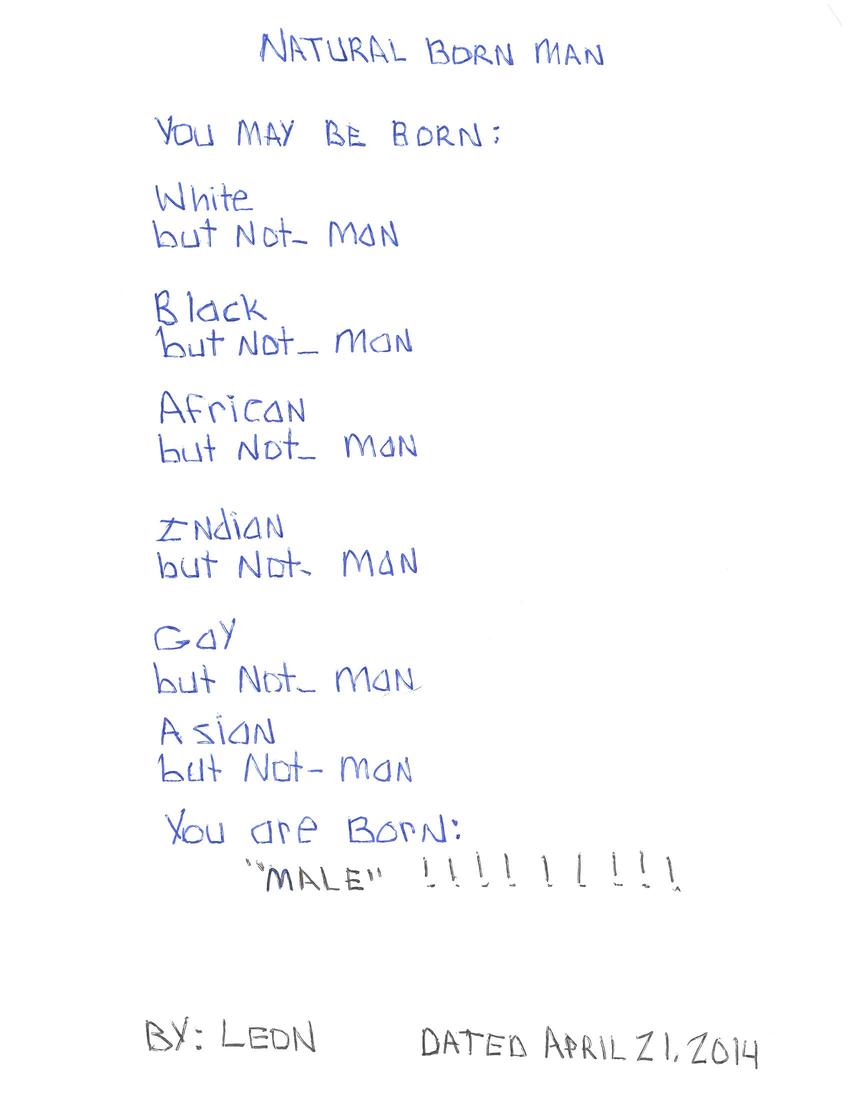 NATURAL BORN MAN
YOU MAY BE BORN:
White
but Not_ MAN
Black
but Not_ MAN
AFricAN
but Not_ MAN
INdiAN
but Not_ MAN
GAY
but Not_ MAN
AsiAN
but Not- MAN
You are BorN:
"MALE" !!!!!!!!!
BY: LEON DATED APRIL 21, 2014